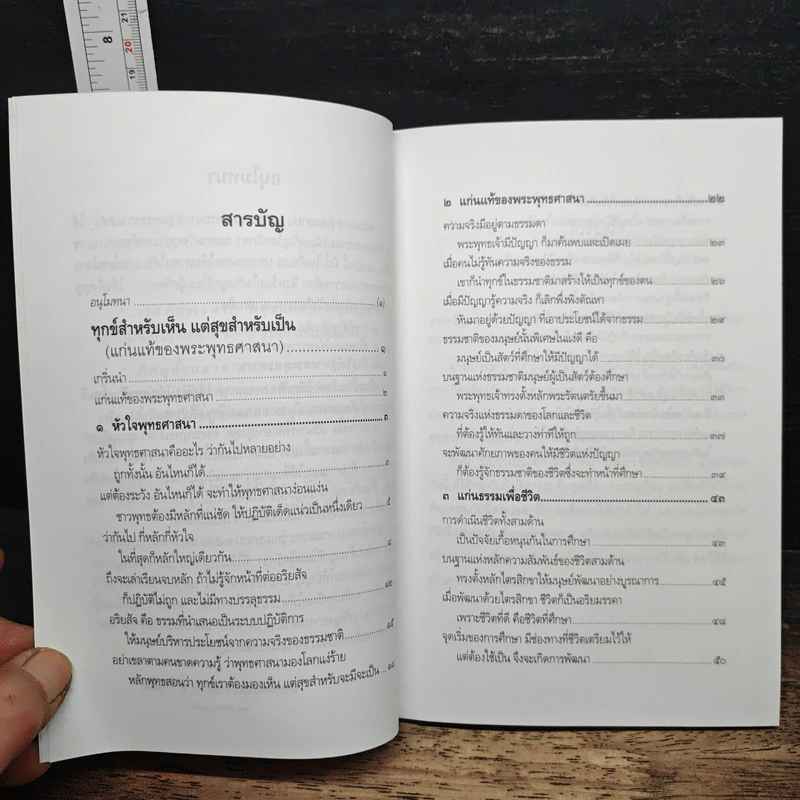 8
21
20
19
สารบัญ
อนุโมทนา ........ (๑)
ทุกข์สำหรับเห็น แต่สุขสำหรับเป็น
(แก่นแท้ของพระพุทธศาสนา) ........ ๑
เกริ่นนำ ........ ๑
แก่นแท้ของพระพุทธศาสนา ........ ๒
๑ หัวใจพุทธศาสนา ........ ๓
หัวใจพุทธศาสนาคืออะไร ว่ากันไปหลายอย่าง
ถูกทั้งนั้น อันไหนก็ได้ ........ ๓
แต่ต้องระวัง อันไหนก็ได้ จะทำให้พุทธศาสนาง่อนแง่น
ชาวพุทธต้องมีหลักที่แน่ชัด ให้ปฏิบัติเด็ดแน่วเป็นหนึ่งเดียว ........ ๕
ว่ากันไป กี่หลักกี่หัวใจ
ในที่สุดก็หลักใหญ่เดียวกัน ........ ๘
ถึงจะเล่าเรียนจบหลัก ถ้าไม่รู้จักหน้าที่ต่ออริยสัจ
ก็ปฏิบัติไม่ถูก และไม่มีทางบรรลุธรรม ........ ๑๒
อริยสัจ คือ ธรรมที่นำเสนอเป็นระบบปฏิบัติการ
ให้มนุษย์บริหารประโยชน์จากความจริงของธรรมชาติ ........ ๑๕
อย่าเขลาตามคนขาดความรู้ ว่าพุทธศาสนามองโลกแง่ร้าย
หลักพุทธสอนว่า ทุกข์เราต้องมองเห็น แต่สุขสำหรับจะมีจะเป็น ... ๑๘
๒ แก่นแท้ของพระพุทธศาสนา ........ ๒๒
ความจริงมีอยู่ตามธรรมดา
พระพุทธเจ้ามีปัญญา ก็มาค้นพบและเปิดเผย ........ ๒๓
เมื่อคนไม่รู้ทันความจริงของธรรม
เขาก็นำทุกข์ในธรรมชาติมาสร้างให้เป็นทุกข์ของตน ........ ๒๖
เมื่อมีปัญญารู้ความจริง ก็เลิกพึ่งพิงตัณหา
หันมาอยู่ด้วยปัญญา ที่เอาประโยชน์ได้จากธรรม ........ ๒๙
ธรรมชาติของมนุษย์นั้นพิเศษในแง่ดี คือ
มนุษย์เป็นสัตว์ที่ศึกษาให้มีปัญญาได้ ........ ๓๐
บนฐานแห่งธรรมชาติมนุษย์ผู้เป็นสัตว์ต้องศึกษา
พระพุทธเจ้าทรงตั้งหลักพระรัตนตรัยขึ้นมา ........ ๓๓
ความจริงแห่งธรรมดาของโลกและชีวิต
ที่ต้องรู้ให้ทันและวางท่าทีให้ถูก ........ ๓๗
จะพัฒนาศักยภาพของคนให้มีชีวิตแห่งปัญญา
ก็ต้องรู้จักธรรมชาติของชีวิตซึ่งจะทำหน้าที่ศึกษา ........ ๓๙
๓ แก่นธรรมเพื่อชีวิต ........ ๔๓
การดำเนินชีวิตทั้งสามด้าน
เป็นปัจจัยเกื้อหนุนกันในการศึกษา ........ ๔๓
บนฐานแห่งหลักความสัมพันธ์ของชีวิตสามด้าน
ทรงตั้งหลักไตรสิกขาให้มนุษย์พัฒนาอย่างบูรณาการ ........ ๔๕
เมื่อพัฒนาด้วยไตรสิกขา ชีวิตก็เป็นอริยมรรคา
เพราะชีวิตที่ดี คือชีวิตที่ศึกษา ........ ๔๘
จุดเริ่มของการศึกษา มีช่องทางที่ชีวิตเตรียมไว้ให้
แต่ต้องใช้เป็น จึงจะเกิดการพัฒนา ........ ๕๐